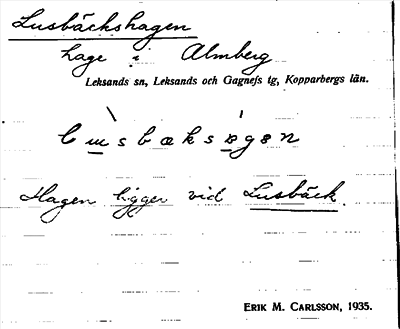 Lusbäckshagen
hage i Almberg
Leksands sn, Leksands och Gagnefs tg, Kopparbergs län.
Hagen ligger vid Lusbäck.
ERIK M. CARLSSON, 1935.